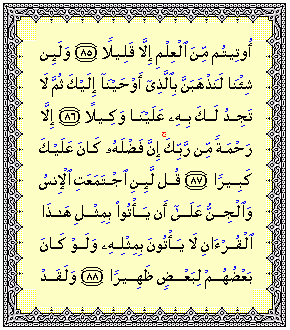 أُوتِيتُم مِّنَ ٱلْعِلْمِ إِلَّا قَلِيلًا ﴿٨٥﴾ وَلَئِن
شِئْنَا لَنَذْهَبَنَّ بِٱلَّذِىٓ أَوْحَيْنَآ إِلَيْكَ ثُمَّ لَا
تَجِدُ لَكَ بِهِۦ عَلَيْنَا وَكِيلًا ﴿٨٦﴾ إِلَّا
رَحْمَةً مِّن رَّبِّكَ ۚ إِنَّ فَضْلَهُۥ كَانَ عَلَيْكَ
كَبِيرًا ﴿٨٧﴾ قُل لَّئِنِ ٱجْتَمَعَتِ ٱلْإِنسُ
وَٱلْجِنُّ عَلَىٰٓ أَن يَأْتُوا۟ بِمِثْلِ هَـٰذَا
ٱلْقُرْءَانِ لَا يَأْتُونَ بِمِثْلِهِۦ وَلَوْ كَانَ
بَعْضُهُمْ لِبَعْضٍ ظَهِيرًا ﴿٨٨﴾ وَلَقَدْ